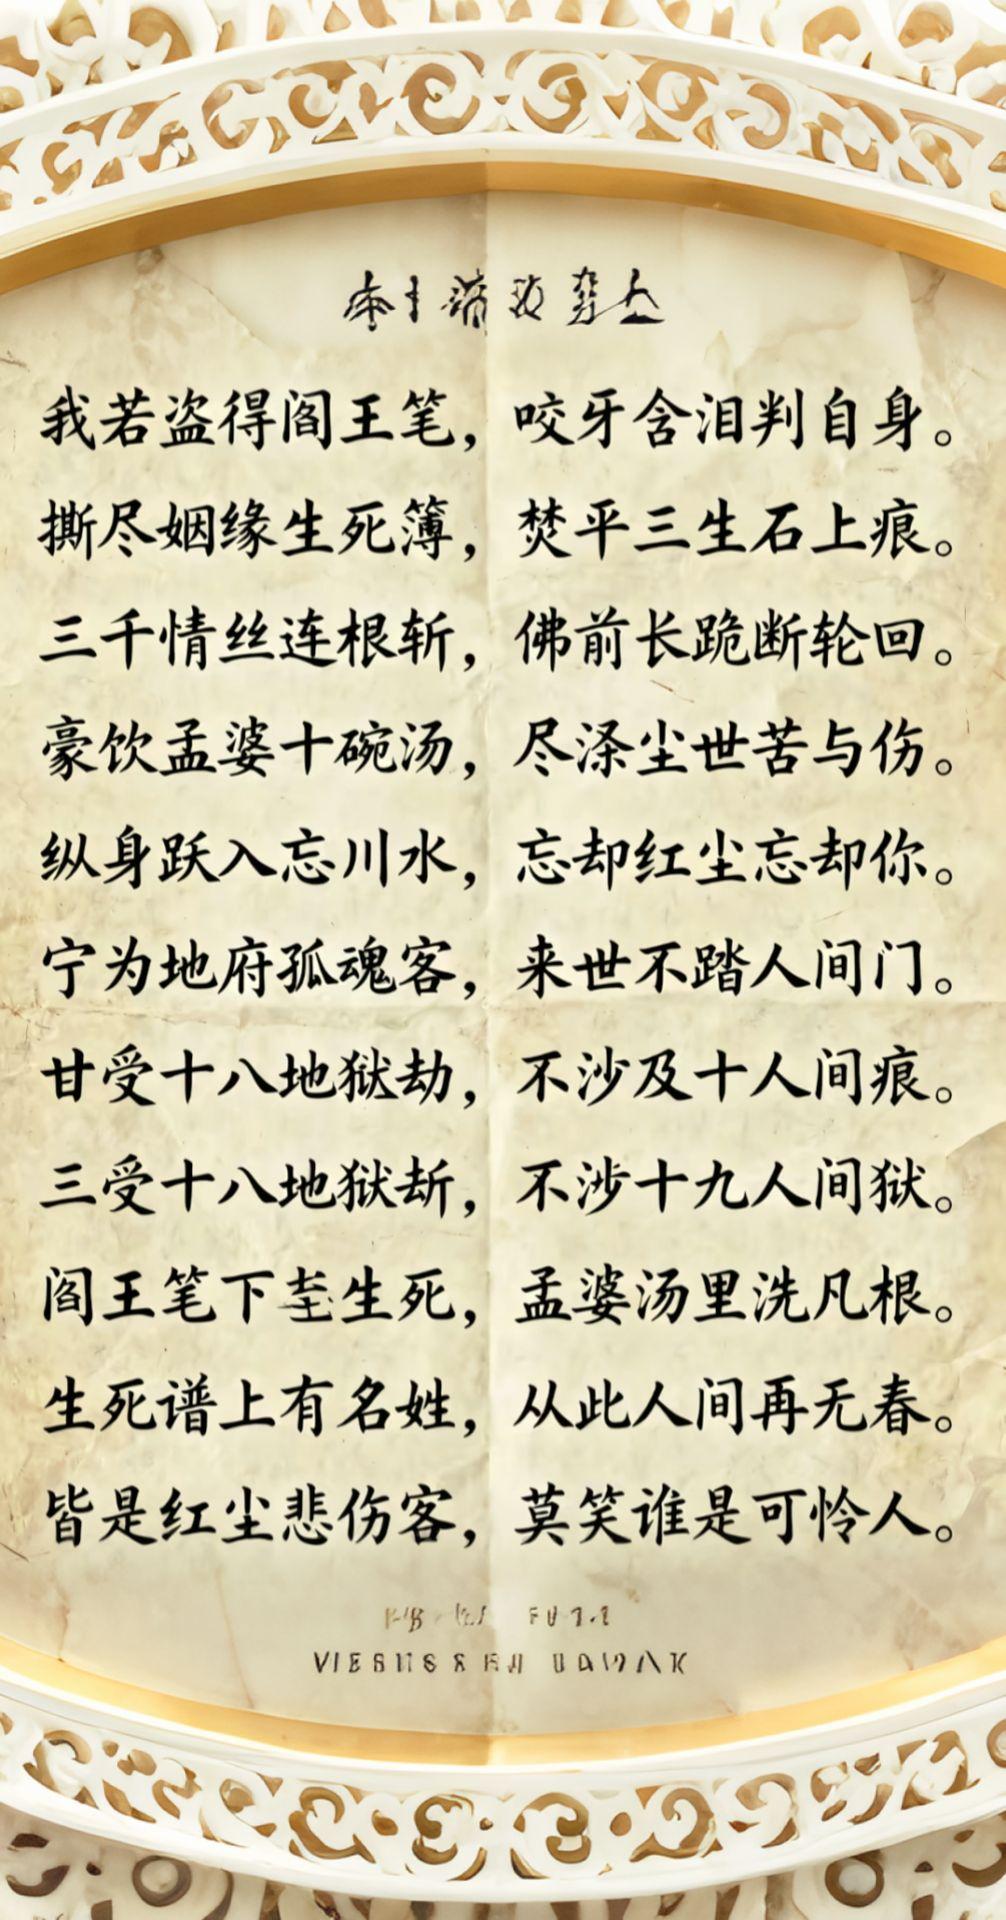 我若盗得阎王笔，咬牙含泪判自身。
撕尽姻缘生死簿，焚平三生石上痕。
三千情丝连根斩，佛前长跪断轮回。
豪饮孟婆十碗汤，尽涤尘世苦与伤。
纵身跃入忘川水，忘却红尘忘却你。
宁为地府孤魂客，来世不踏人间门。
甘受十八地狱劫，不沙及十人间痕。
三受十八地狱斮，不涉十九人间狱。
阎王笔下生死，孟婆汤里洗凡根。
生死谱上有名姓，从此人间再无春。
皆是红尘悲伤客，莫笑谁是可怜人。